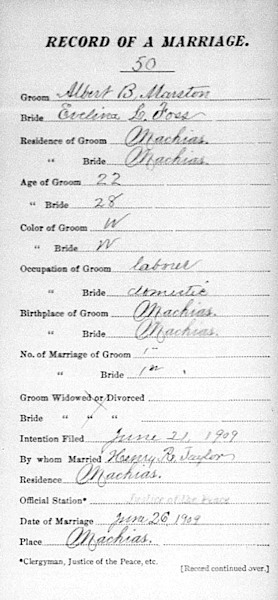 RECORD OF A MARRIAGE.
50
Groom Albert B. Marston
Bride Evelina L. Foss
Residence of Groom Machias.
" Bride Machias.
Age of Groom 22
" Bride 28
Color of Groom W
" Bride W
Occupation of Groom laborer
" Bride domestic
Birthplace of Groom Machias.
" Bride Machias.
No. of Marriage of Groom 1"
" Bride 1st
Groom Widowed or Divorced
Bride " " "
Intention Filed June 21, 1909
By whom Married Henry R. Taylor
Residence Machias.
Official Station* Justice of the Peace
Date of Marriage June 26, 1909
Place Machias.
*Clergyman, Justice of the Peace, etc.
[Record continued over.]